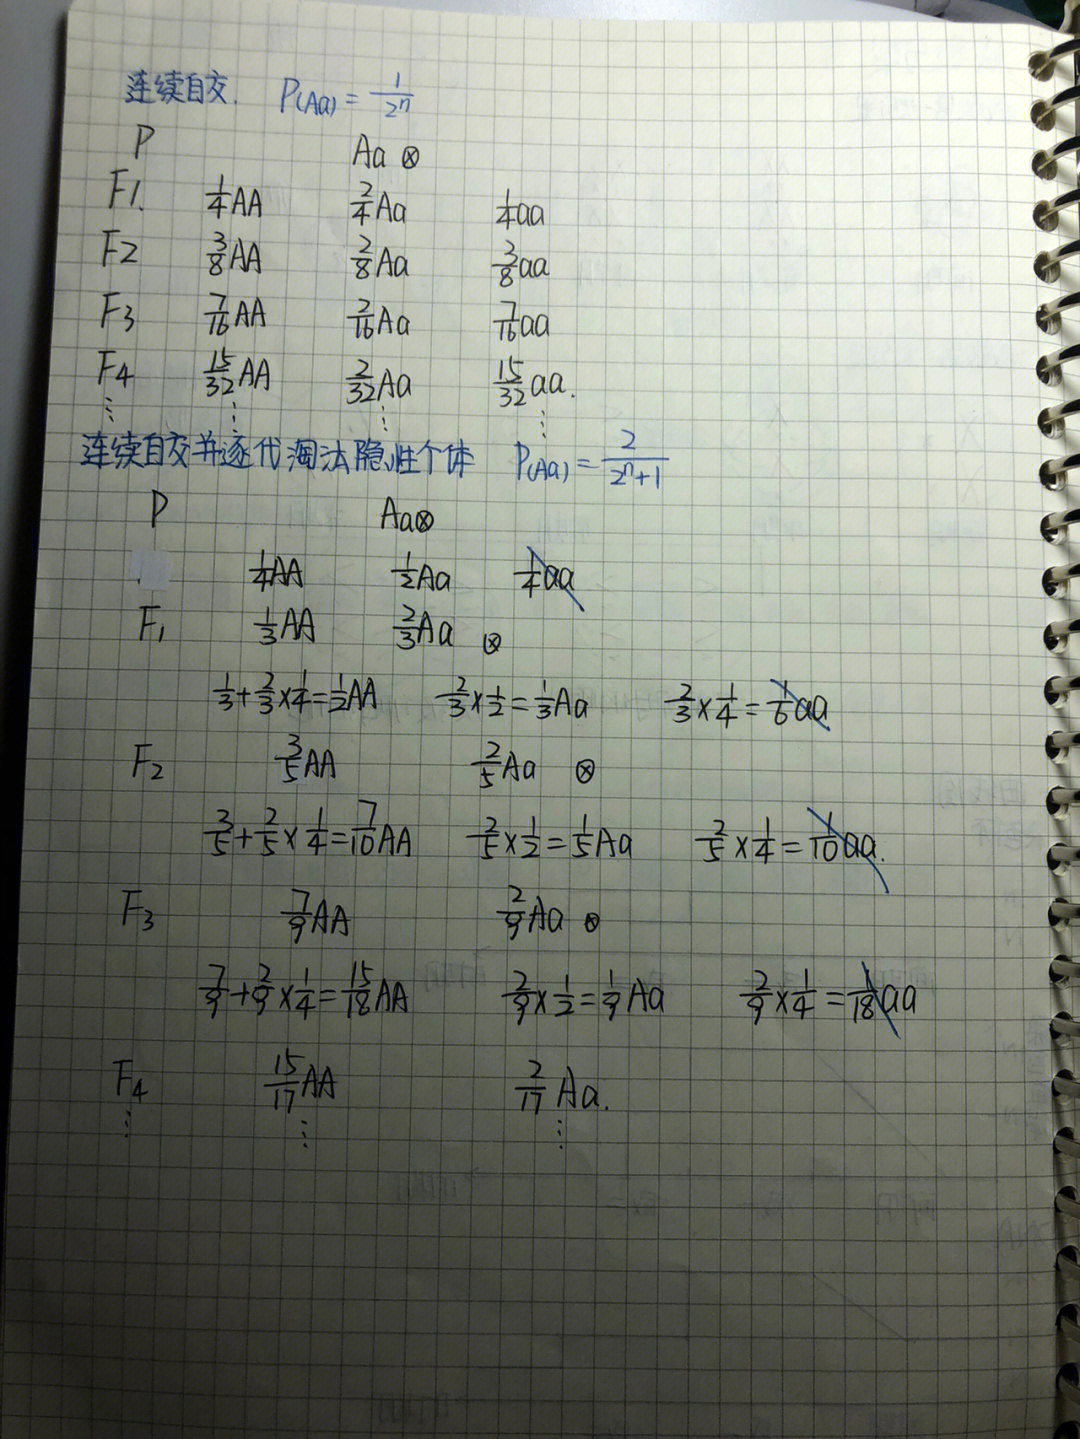 连续自交. P(Aa) = 1/2ⁿ
P Aa ⊗
F1. 1/4AA 2/4Aa 1/4aa
F2 3/8AA 2/8Aa 3/8aa
F3 7/16AA 2/16Aa 7/16aa
F4 15/32AA 2/32Aa 15/32aa.
⋮ ⋮ ⋮ ⋮
连续自交并逐代淘汰隐性个体 P(Aa) = 2/(2ⁿ+1)
P Aa⊗
1/4AA 1/2Aa 1/4aa
F₁ 1/3AA 2/3Aa ⊗
1/3+2/3×1/4=1/2AA 2/3×1/2=1/3Aa 2/3×1/4=1/6aa
F₂ 3/5AA 2/5Aa ⊗
3/5+2/5×1/4=7/10AA 2/5×1/2=1/5Aa 2/5×1/4=1/10aa.
F₃ 7/9AA 2/9Aa ⊗
7/9+2/9×1/4=15/18AA 2/9×1/2=1/9Aa 2/9×1/4=1/18aa
F₄ 15/17AA 2/17Aa.
⋮ ⋮ ⋮